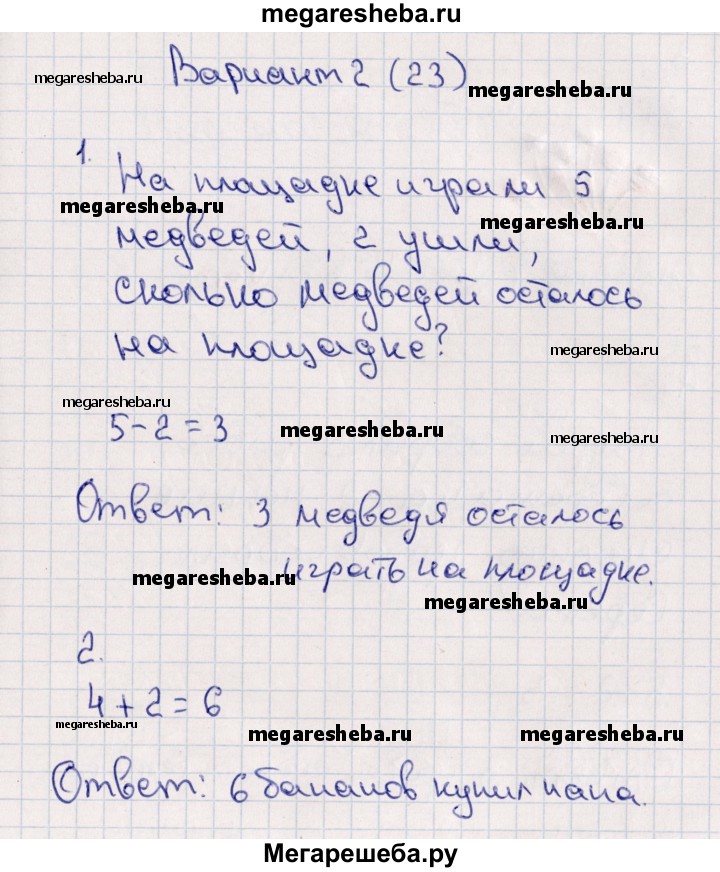 megaresheba.ru
Вариант 2 (23)
megaresheba.ru
megaresheba.ru
1.
На площадке играли 5
megaresheba.ru
megaresheba.ru
медведей, 2 ушли,
сколько медведей осталось
на площадке?
megaresheba.ru
megaresheba.ru
5-2=3
megaresheba.ru
megaresheba.ru
Ответ: 3 медведя осталось
играть на площадке.
megaresheba.ru
megaresheba.ru
2.
4+2=6
megaresheba.ru
megaresheba.ru
megaresheba.ru
Ответ: 6 бананов купил папа.
Мегарешеба.ру